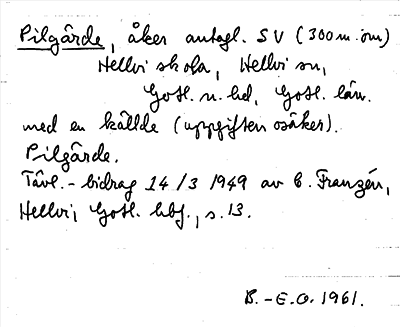 Pilgårde, åker antagl. SV (300 m. om)
Hellvi skola, Hellvi sn,
Gotl. n. hd, Gotl. län.
med en källde (uppgiften osäker).
Pilgårde.
Tävl.-bidrag 14/3 1949 av C. Franzén,
Hellvi, Gotl. hbf., s. 13.
B.-E.O. 1961.